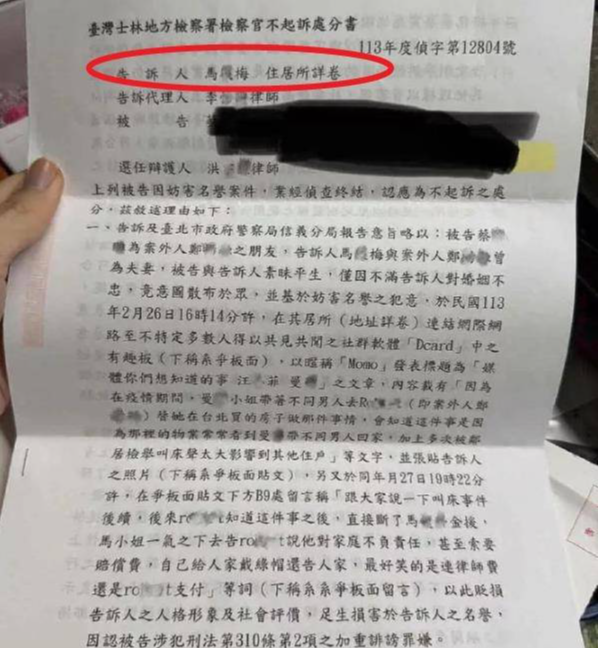 臺灣士林地方檢察署檢察官不起訴處分書
113年度偵字第12804號
告 訴 人 馬 梅 住居所詳卷
告訴代理人 李 律師
被 告
選任辯護人 洪 律師
上列被告因妨害名譽案件,業經偵查終結,認應為不起訴之處
分,茲敘述理由如下:
一、告訴及臺北市政府警察局信義分局報告意旨略以:被告蔡
為案外人鄭 之朋友,告訴人馬 梅與案外人鄭 曾
為夫妻,被告與告訴人素昧平生,僅因不滿告訴人對婚姻不
忠,竟意圖散布於眾,並基於妨害名譽之犯意,於民國113
年2月26日16時14分許,在其居所(地址詳卷)連結網際網
路至不特定多數人得以共見共聞之社群軟體「Dcard」中之
有趣板(下稱系爭板面),以暱稱「Momo」發表標題為「媒
體你們想知道的事 汪 菲 曼 」之文章,內容載有「因為
在疫情期間,曼 小姐帶著不同男人去Ro (即案外人鄭
)替她在台北買的房子做那件事情,會知道這件事是因
為那裡的物業常常看到曼 帶不同男人回家,加上多次被鄰
居檢舉叫床聲太大影響到其他住戶」等文字,並張貼告訴人
之照片(下稱系爭板面貼文),另又於同年月27日19時22分
許,在爭板面貼文下方B9處留言稱「跟大家說一下叫床事件
後續,後來ro t知道這件事之後,直接斷了馬 金援,
馬小姐一氣之下去告ro t說他對家庭不負責任,甚至索要
賠償費,自己給人家戴綠帽還告人家,最好笑的是連律師費
還是ro t支付」等詞(下稱系系爭板面留言),以此貶損
告訴人之人格形象及社會評價,足生損害於告訴人之名譽,
因認被告涉犯刑法第310條第2項之加重誹謗罪嫌。